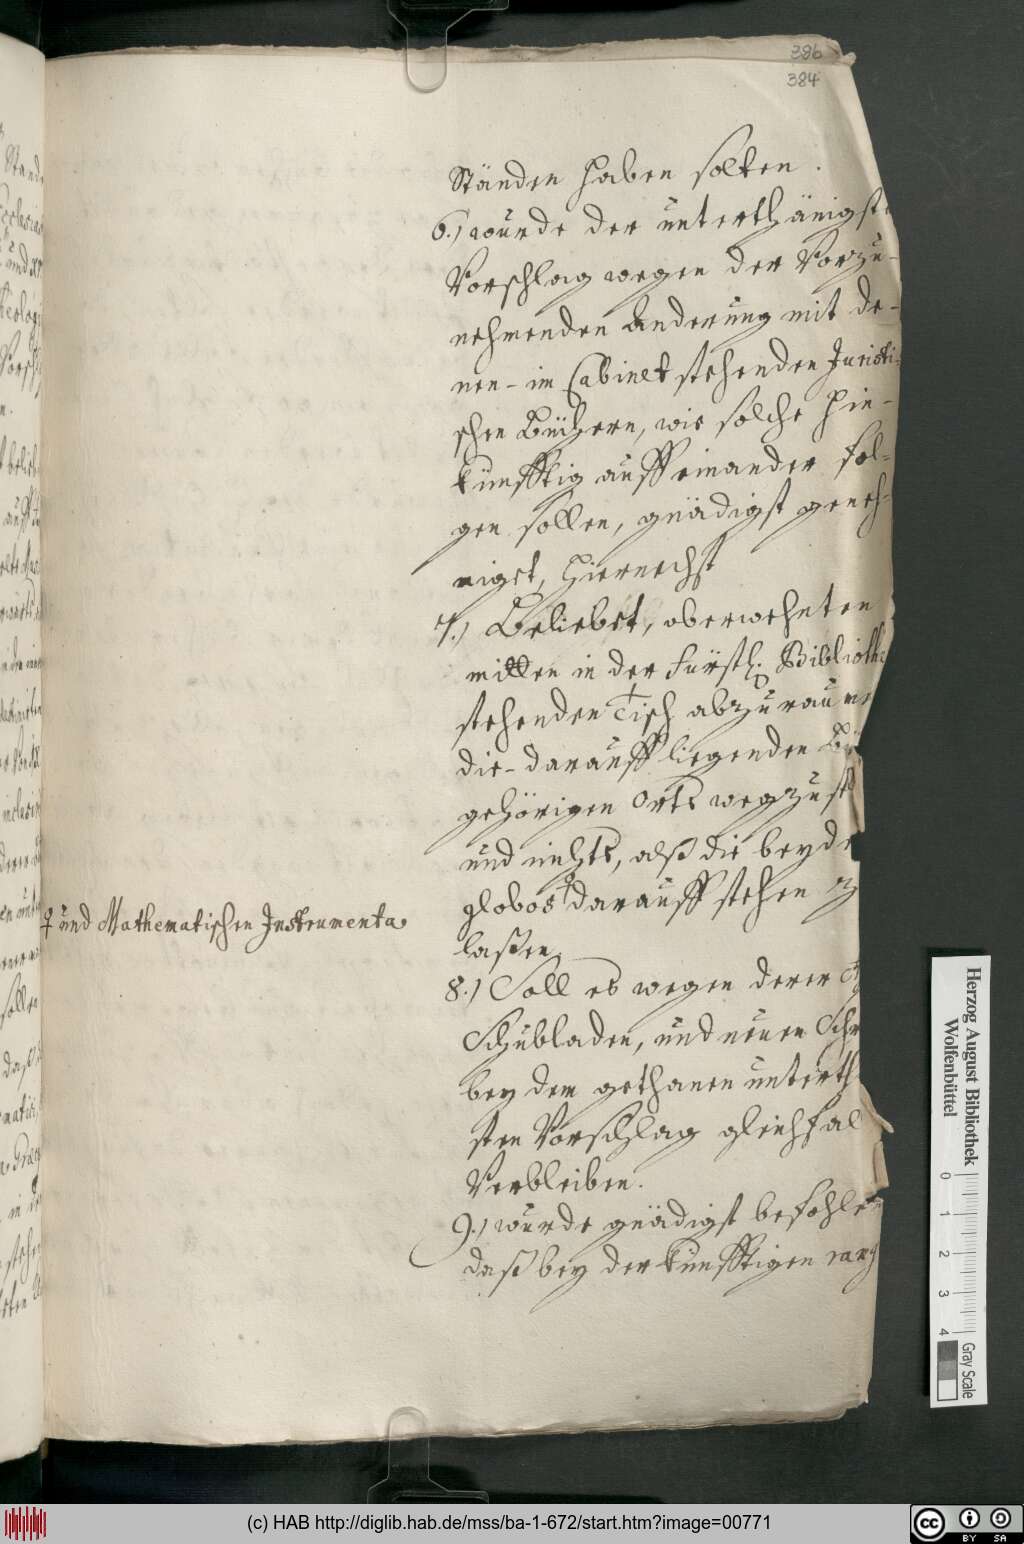 386
384
Ständen haben solten.
6.) wurde der unterthänigste
Vorschlag wegen der Vorzu-
nehmenden änderung mit de-
nen-im Cabinet stehenden Juristi-
schen Büchern, wie solche hin-
künfftig auff einander fol-
gen sollen, gnädigst geneh-
miget, hiernechst
7.) Beliebet, oberwehnten
mitten in der Fürstl. Bibliothe
stehenden Tisch abzuräume
die-darauff liegenden Bü
gehörigen Orts wegzuse
und nichts, alß die beyde
globos darauff stehen z
laßen.
♀ und Mathematischen Instrumenta
8.) Soll es wegen derer
Schubladen, und neuen Schr
bey dem gethanen unterth
sten Vorschlag gleichfal
Verbleiben.
9.) wurde gnädigst befohle
daß bey der künfftigen rang
Herzog August Bibliothek
Wolfenbüttel
0 1 2 3 4
Gray Scale
(c) HAB http://diglib.hab.de/mss/ba-1-672/start.htm?image=00771
cc BY SA